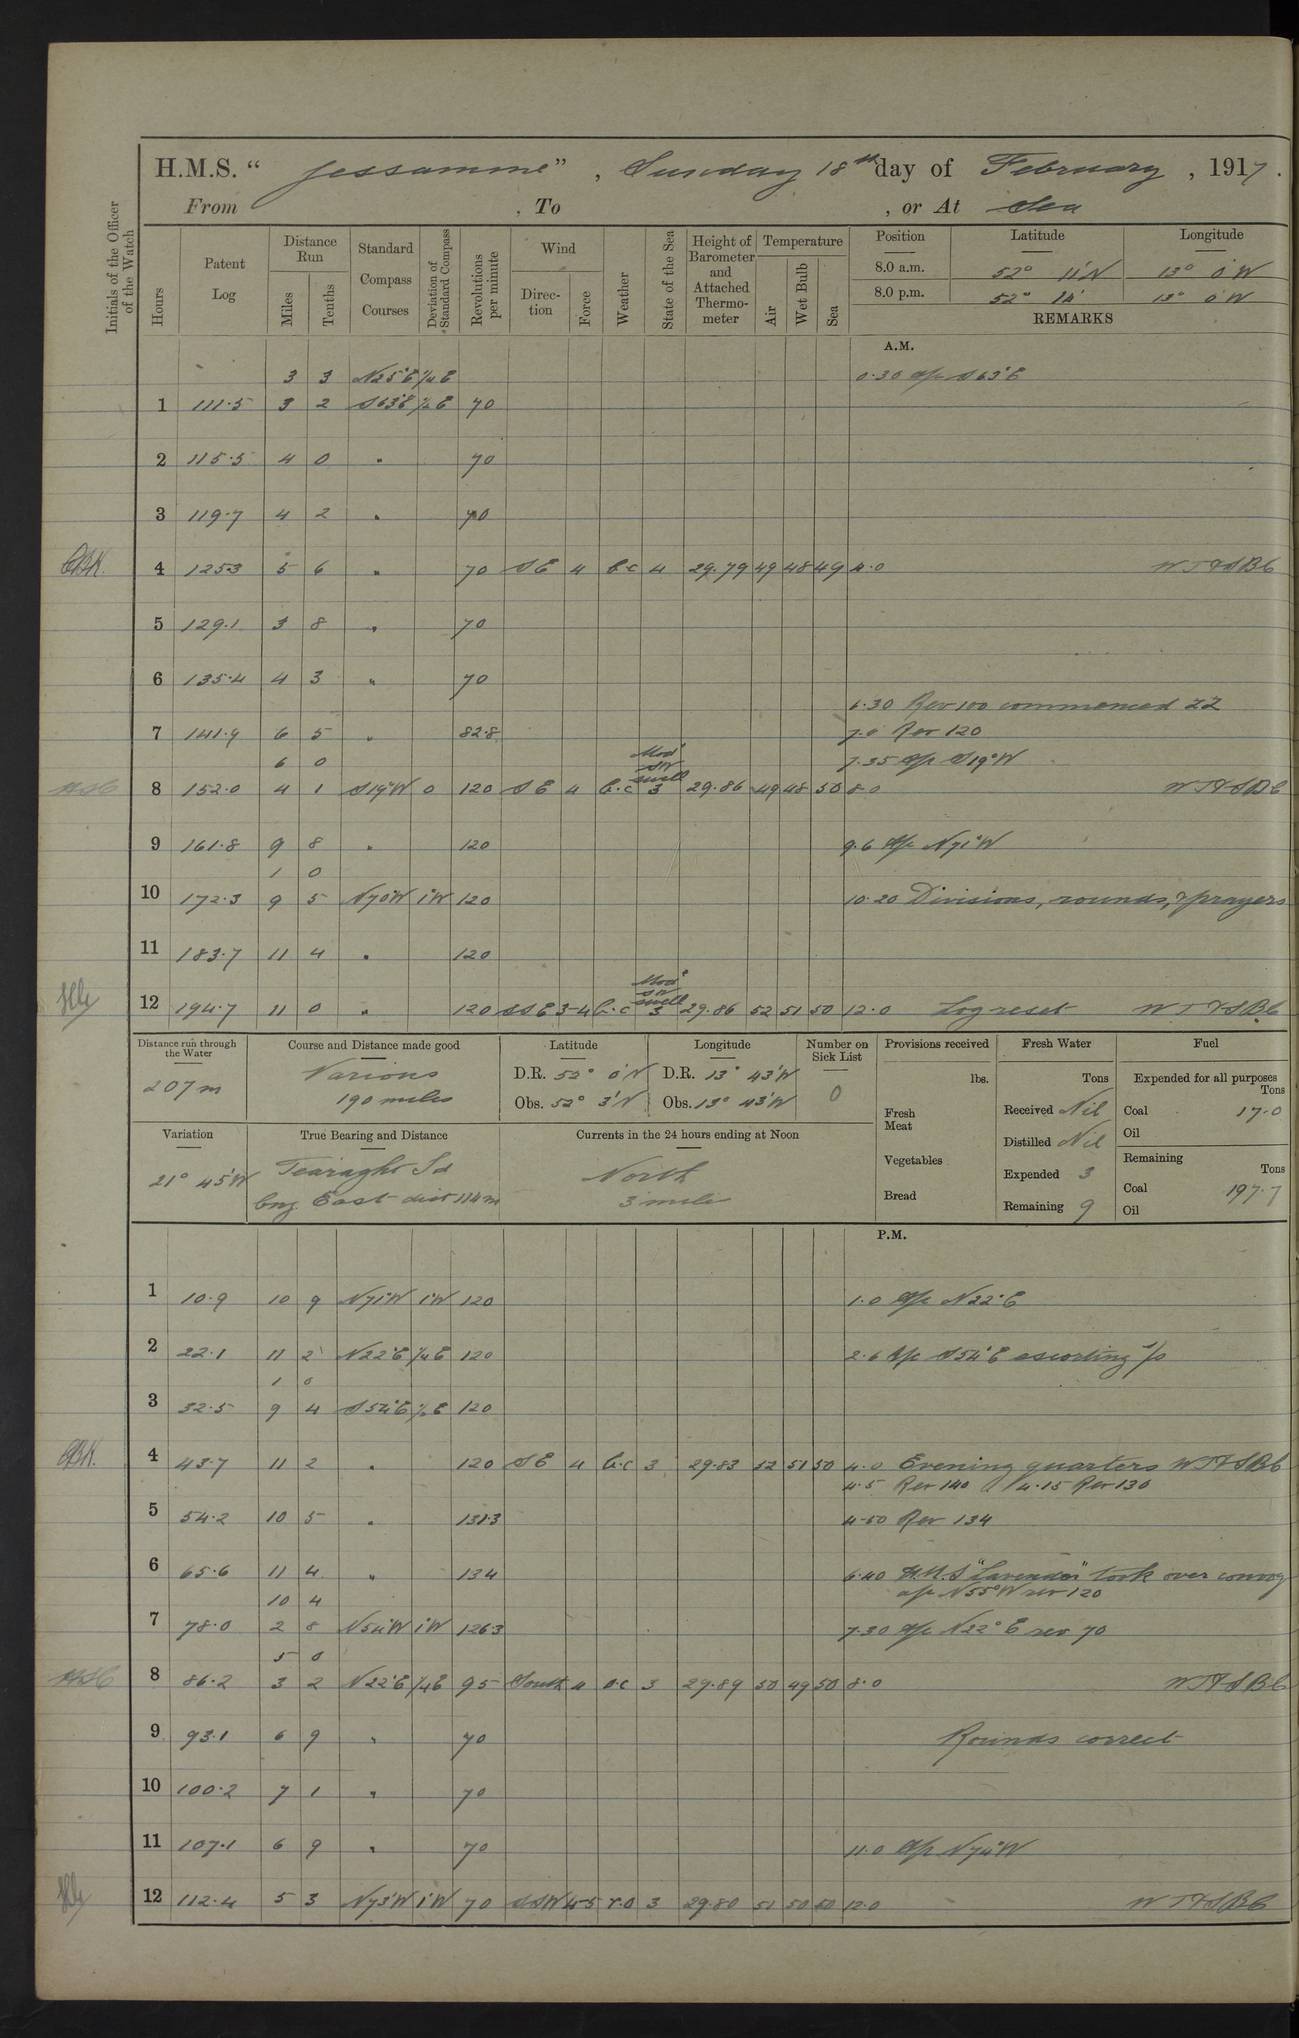 H.M.S. “ Jessamine” , Sunday 18th day of February , 1917.
From , To , or At Sea
Initials of the Officer of the Watch
Hours
Patent Log
Distance Run
Miles
Tenths
Standard Compass Courses
Deviation of Standard Compass
Revolutions per minute
Wind
Direction
Force
Weather
State of the Sea
Height of Barometer and Attached Thermometer
Temperature
Air
Wet Bulb
Sea
Position Latitude Longitude
8.0 a.m. 52° 11'N 13° 0'W
8.0 p.m. 52° 14' 13° 0'W
REMARKS
A.M.
3 3 N25°E ¼E 0.30 a/c S63°E
1 111.5 3 2 S63°E ½E 70
2 115.5 4 0 " 70
3 119.7 4 2 " 70
4 125.3 5 6 " 70 SE 4 b.c 4 29.79 49 48 49 4.0
5 129.1 3 8 " 70
6 135.4 4 3 " 70
6.30 Rev 100 commenced ZZ
7 141.9 6 5 " 82.8 7.0 Rev 120
6 0 Mod SW swell 7.35 a/c S19°W
8 152.0 4 1 S19°W 0 120 SE 4 b.c 3 29.86 49 48 50 8.0
9 161.8 9 8 " 120 9.6 a/c N71°W
1 0
10 172.3 9 5 N70°W 1°W 120 10.20 Divisions, rounds, & prayers
11 183.7 11 4 " 120
Mod SW swell
12 194.7 11 0 " 120 SSE 3-4 b.c 3 29.86 52 51 50 12.0 Log reset
Distance run through the Water
207m
Course and Distance made good
Various
190 miles
Latitude
D.R. 52° 0'N
Obs. 52° 3'N
Longitude
D.R. 13° 43'W
Obs. 13° 43'W
Number on Sick List
0
Provisions received
lbs.
Fresh Meat
Vegetables
Bread
Fresh Water
Tons
Received Nil
Distilled Nil
Expended 3
Remaining 9
Fuel
Expended for all purposes
Tons
Coal 17.0
Oil
Remaining
Tons
Coal 197.7
Oil
Variation
21° 45'W
True Bearing and Distance
Tearaght Id
brg East dist 114m
Currents in the 24 hours ending at Noon
North
3 miles
P.M.
1 10.9 10 9 N71°W 1°W 120 1.0 a/c N22°E
2 22.1 11 2 N22°E ¼E 120 2.6 a/c S54°E escorting
1 0
3 32.5 9 4 S54°E ½E 120
4 43.7 11 2 " 120 SE 4 b.c 3 29.83 52 51 50 4.0 Evening quarters
4.5 Rev 140 4.15 Rev 130
5 54.2 10 5 " 131.3 4.50 Rev 134
6 65.6 11 4 " 134 6.40 H.M.S "Lavender" took over convoy
10 4 a/c N55°W rev 120
7 78.0 2 8 N54°W 1°W 126.3 7.30 a/c N22°E rev 70
5 0
8 86.2 3 2 N22°E ¼E 95 South 4 o.c 3 29.89 50 49 50 8.0
9 93.1 6 9 " 70 Rounds correct
10 100.2 7 1 " 70
11 107.1 6 9 " 70 11.0 a/c N74°W
12 112.4 5 3 N73°W 1°W 70 SSW 4-5 r.o 3 29.80 51 50 50 12.0